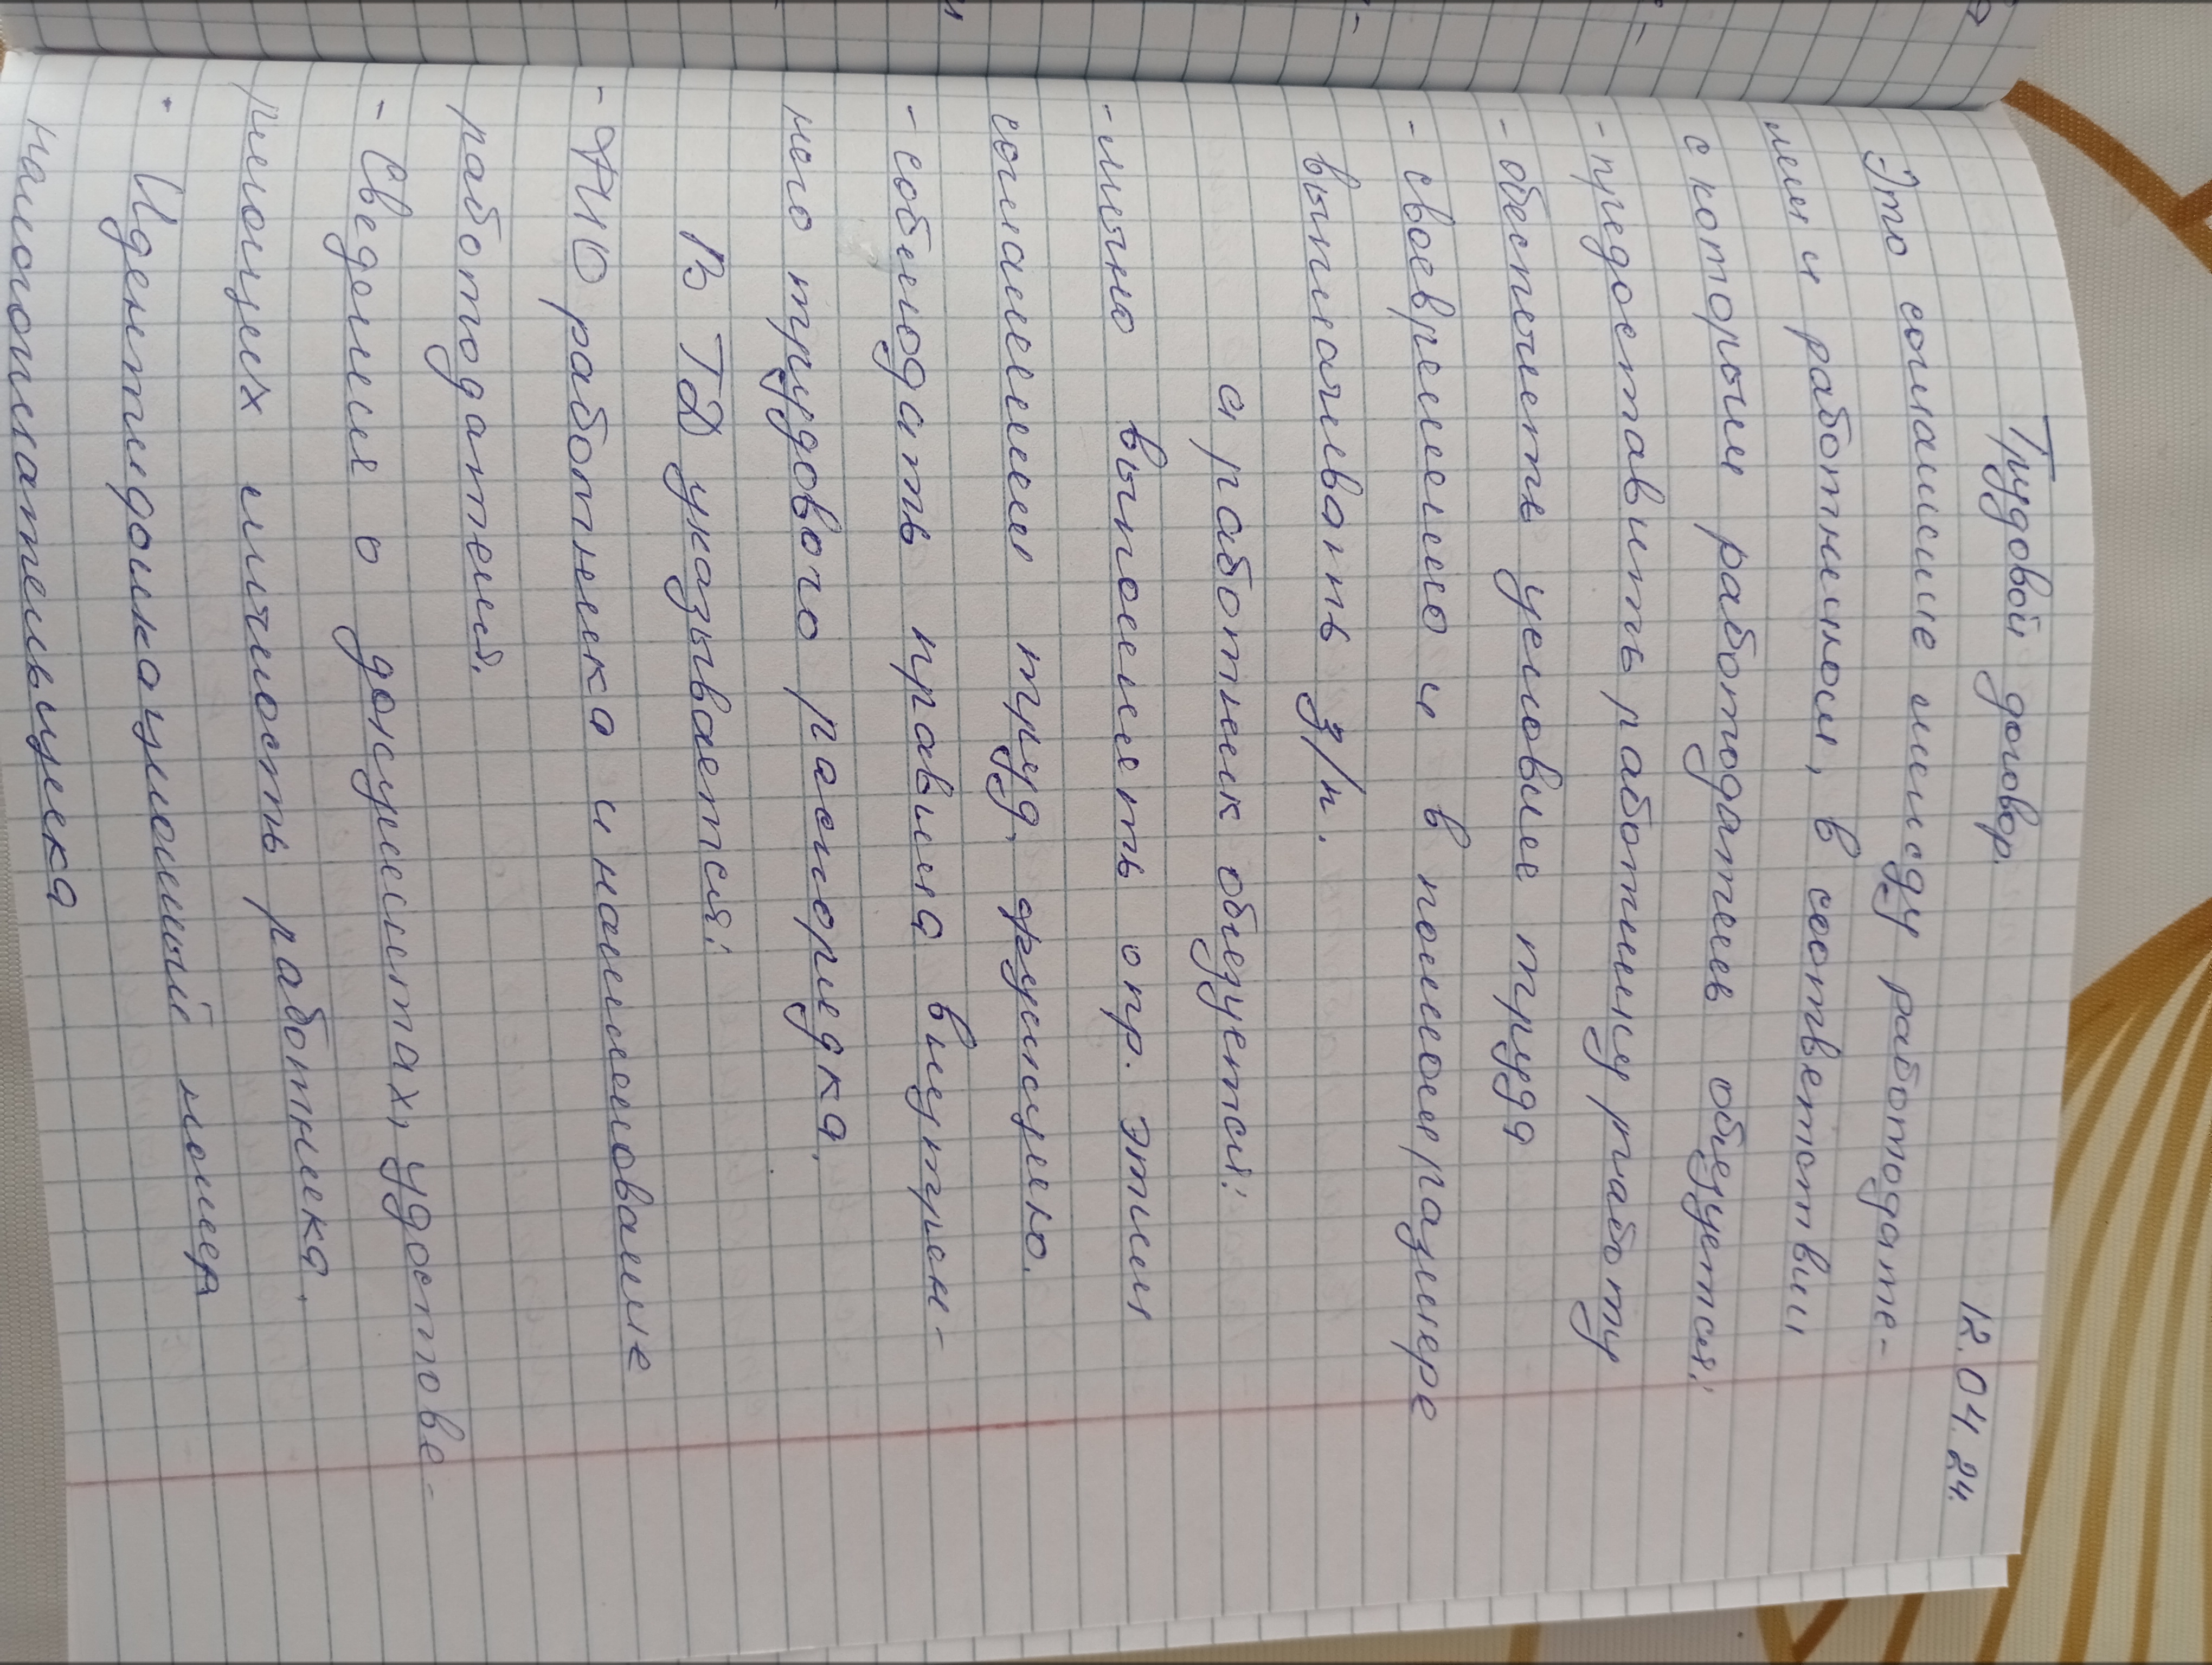 12.04.24.
Трудовой договор.
Это соглашение между работодате-
лем и работником, в соответствии
с которым работодатель обязуется:
- предоставить работнику работу
- обеспечить условие труда
- своевременно и в полном размере
выплачивать з/п.
а работник обязуется:
- лично выполнять опр. этим
соглашением труд. функцию.
- соблюдать правила внутрен-
него трудового распорядка.
В ТД указывается:
- ФИО работника и наименование
работодателя.
- Сведения о документах, удостове-
ряющих личность работника.
· Идентификационный номер
налогоплательщика